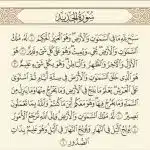 سُورَةُ الحَدِيدِ
سَبَّحَ لِلَّهِ مَا فِي السَّمَوَاتِ وَالْأَرْضِ وَهُوَ الْعَزِيزُ الْحَكِيمُ ۝ لَهُ مُلْكُ
السَّمَوَاتِ وَالْأَرْضِ يُحْيِي وَيُمِيتُ وَهُوَ عَلَى كُلِّ شَيْءٍ قَدِيرٌ ۝ هُوَ
الْأَوَّلُ وَالْآخِرُ وَالظَّاهِرُ وَالْبَاطِنُ وَهُوَ بِكُلِّ شَيْءٍ عَلِيمٌ ۝
هُوَ الَّذِي خَلَقَ السَّمَوَاتِ وَالْأَرْضَ فِي سِتَّةِ أَيَّامٍ ثُمَّ اسْتَوَى
عَلَى الْعَرْشِ يَعْلَمُ مَا يَلِجُ فِي الْأَرْضِ وَمَا يَخْرُجُ مِنْهَا وَمَا يَنْزِلُ مِنَ
السَّمَاءِ وَمَا يَعْرُجُ فِيهَا وَهُوَ مَعَكُمْ أَيْنَ مَا كُنْتُمْ وَاللَّهُ بِمَا تَعْمَلُونَ بَصِيرٌ
۝ لَهُ مُلْكُ السَّمَوَاتِ وَالْأَرْضِ وَإِلَى اللَّهِ تُرْجَعُ الْأُمُورُ ۝
يُولِجُ اللَّيْلَ فِي النَّهَارِ وَيُولِجُ النَّهَارَ فِي اللَّيْلِ وَهُوَ عَلِيمٌ بِذَاتِ
الصُّدُورِ ۝